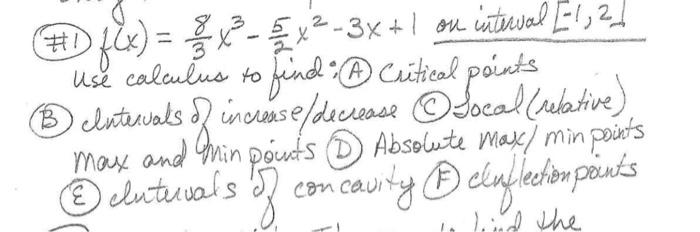 #1) f(x) = 8/3 x³ - 5/2 x² - 3x + 1 on interval [-1, 2]
Use calculus to find: Ⓐ Critical points
Ⓑ Intervals of increase/decrease Ⓒ Local (relative)
max and min points Ⓓ Absolute max/min points
Ⓔ Intervals of concavity Ⓕ Inflection points
find the